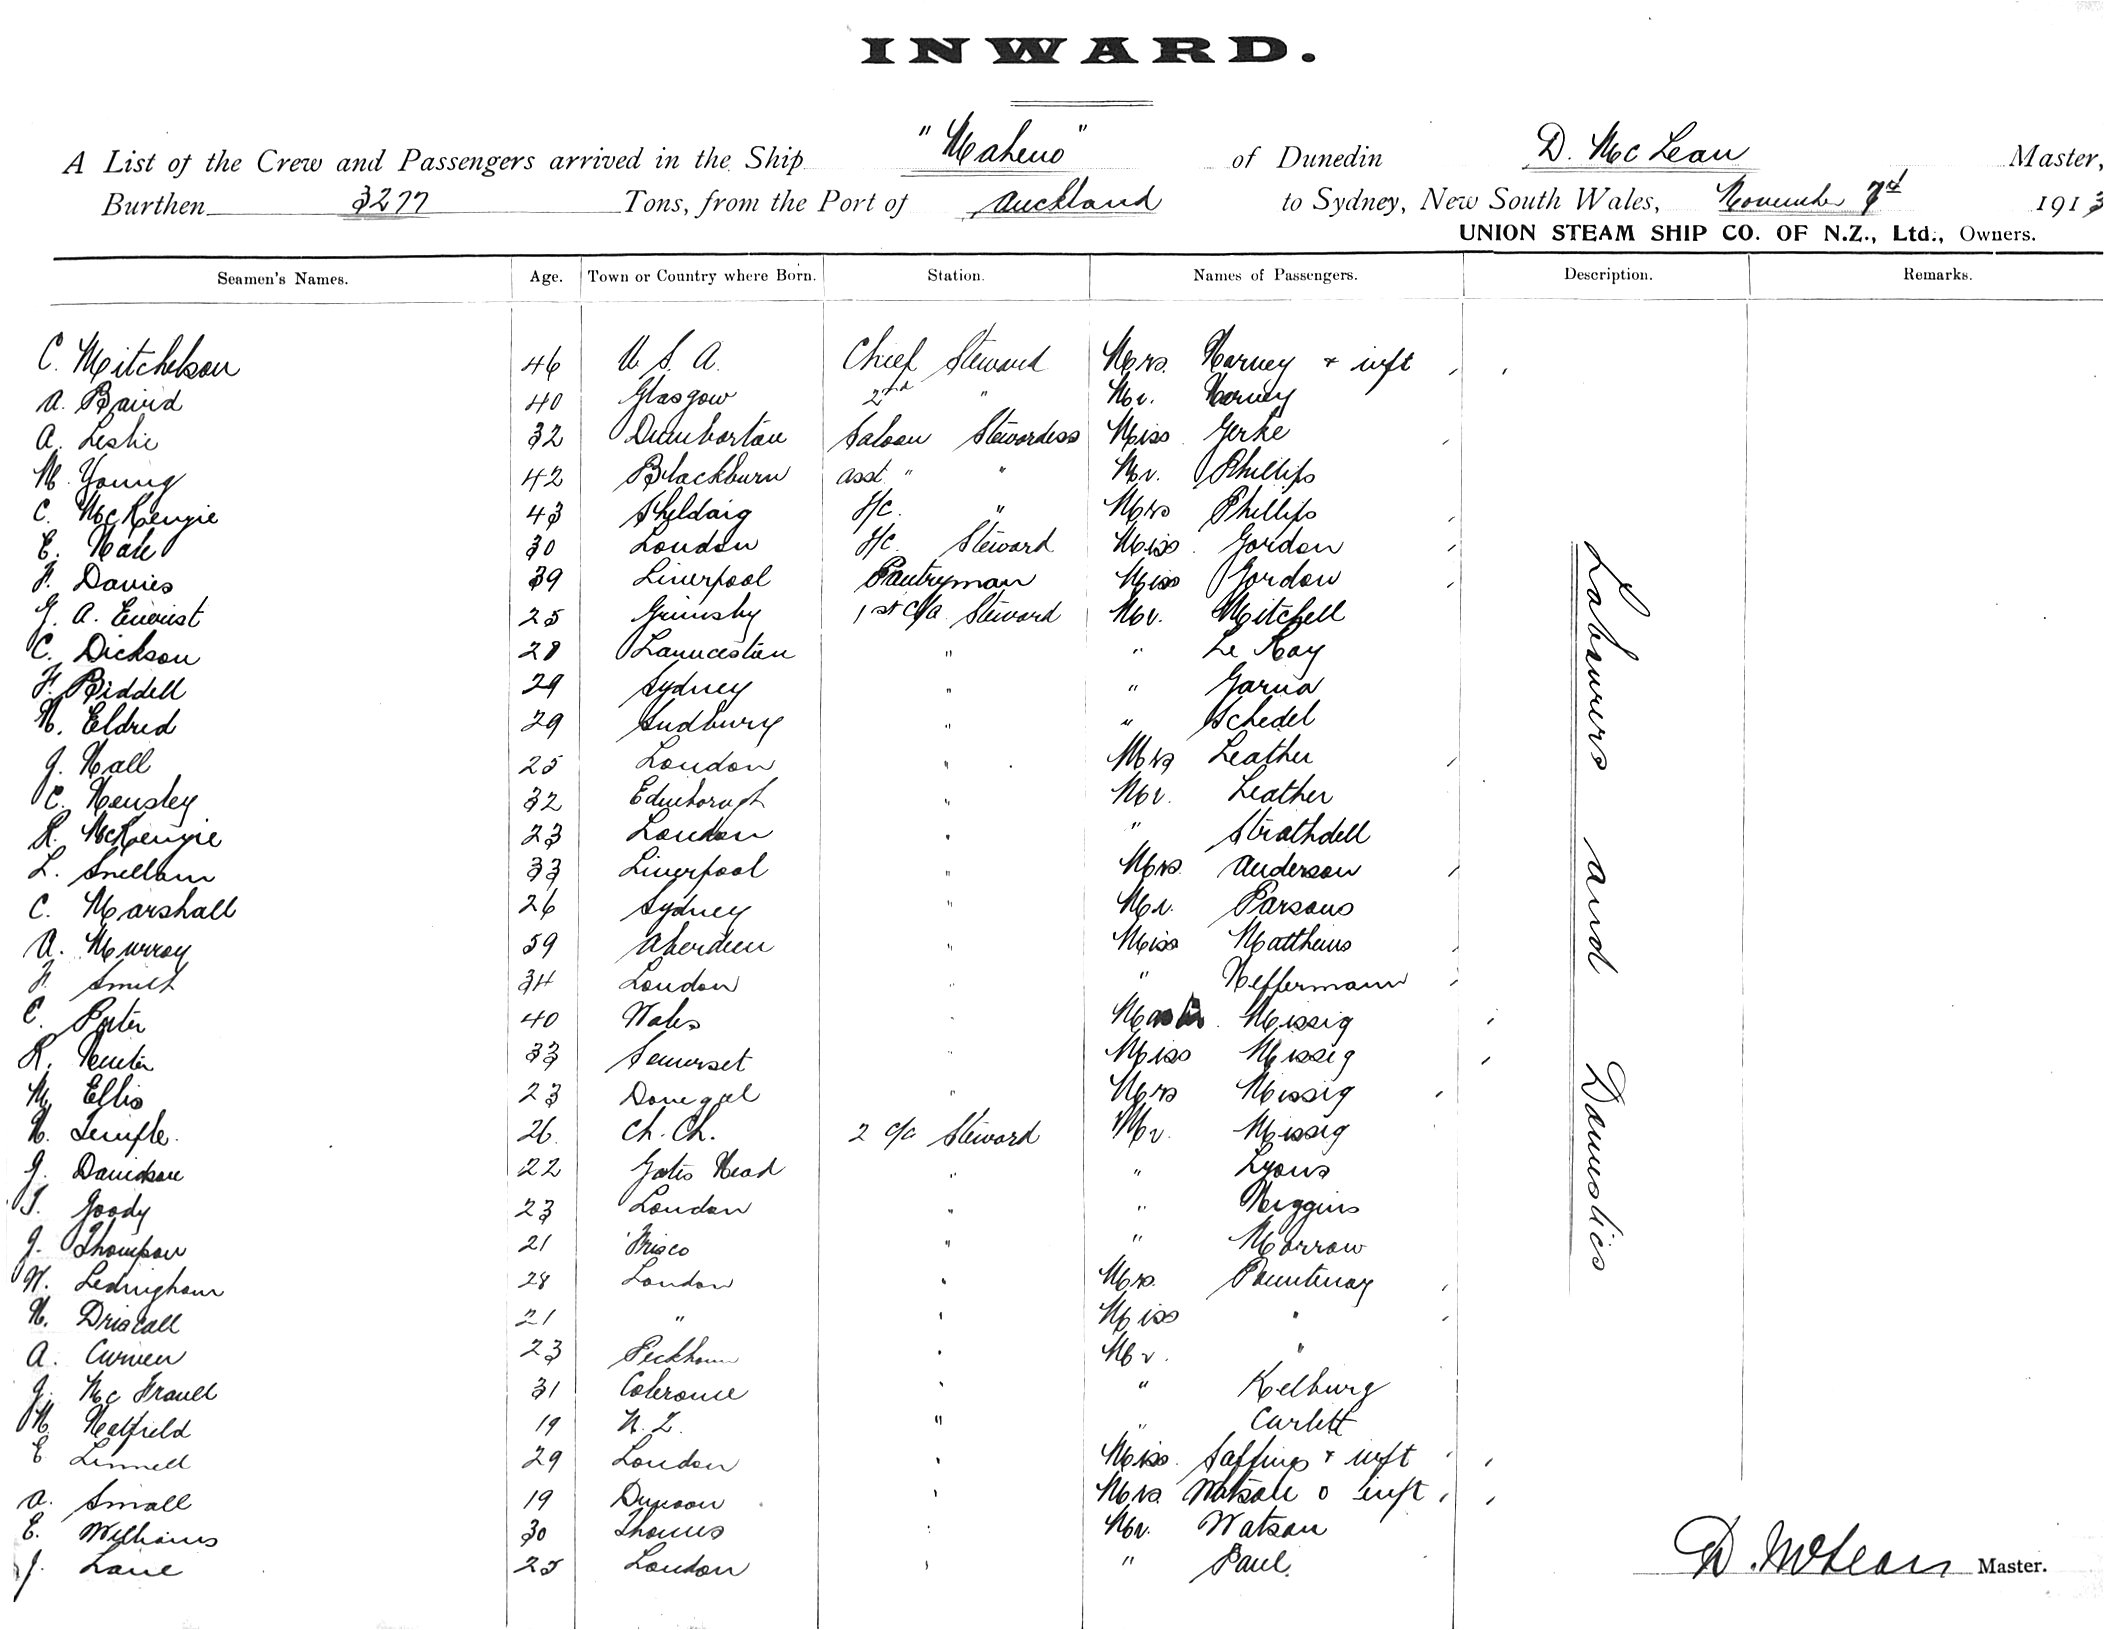 INWARD.
A List of the Crew and Passengers arrived in the Ship "Maheno" of Dunedin D. McLean Master,
Burthen 3277 Tons, from the Port of Auckland to Sydney, New South Wales, November 1913
UNION STEAM SHIP CO. OF N.Z., Ltd., Owners.
Seamen's Names. Age. Town or Country where Born. Station. Names of Passengers. Description. Remarks.
C. Mitchelson 46 U S. A. Chief Steward Mrs. Harney + inft
A. Baird 40 Glasgow 2nd " Mr. Harney
A. Leslie 32 Dumbarton Saloon Stewardess Miss Gerke
M. Young 42 Blackburn asst. " " Mr. Phillips
C. McKenzie 43 Sheldaig " Mrs Phillips
E. Hale 30 London Steward Miss Gordon
F. Davies 39 Liverpool Pantryman Miss Gordon
G. A. Enquist 25 Grimsby 1st c/a Steward Mr. Mitchell
C. Dickson 28 Launceston " " Le Roy
F. Biddell 29 Sydney " " Garna
H. Eldred 29 Sudbury " " Schedel
J. Hall 25 London " Mrs Leather
C. Hensley 32 Edinborough " Mr. Leather
R. McKenzie 23 London " " Strathdell
L. Snellam 33 Liverpool " Mrs. Anderson
C. Marshall 26 Sydney " Mr. Parsons
A. Murray 59 Aberdeen " Miss Matthews
F. Smith 34 London " " Heffermann
C. Porter 40 Wales " Missig
R. Hunter 33 Somerset " Miss Missig
M. Ellis 23 Donegal " Mrs Missig
H. Temple. 26 Ch. Ch. 2 c/a Steward Mr. Missig
J. Davidson 22 Gates Head " " Lyons
T. Goody 23 London " " Higgins
J. Thompson 21 Frisco " " Morrow
W. Ledingham 28 London " Mrs. Pountenay
H. Driscoll 21 " " Miss "
A. Curwen 23 Peckham " Mr. "
J. 31 Colerome " " Kelburg
H. Hatfield 19 N. Z. " " Carlett
E Linnell 29 London " Miss. Saffins + inft
A. Small 19 Dunoon " Mrs. Watson + inft
E. Williams 30 Thames " Mr. Watson
J. Lane 25 London " " Paul.
Labourers and Domestics
D. McLean Master.